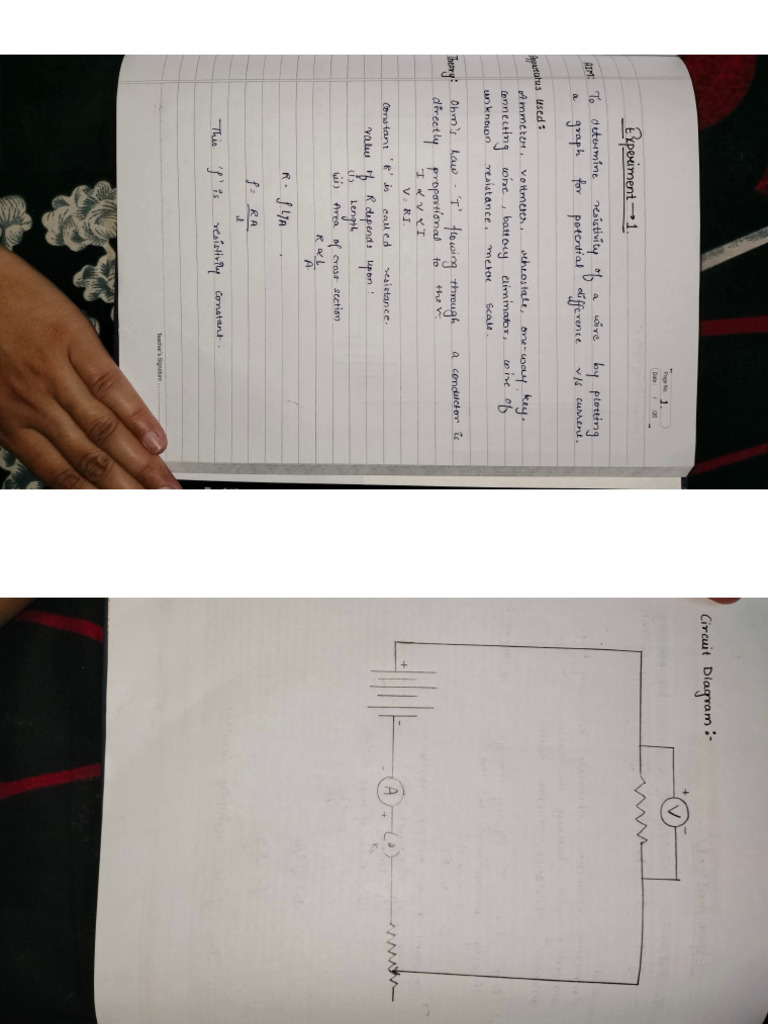 Page No. 1.
Date: / /20
Experiment → 1.
AIM: To determine resistivity of a wire by plotting
a graph for potential difference v/s current.
Apparatus used:
Ammeter, voltmeter, rheostate, one-way key,
connecting wire, battery eliminator, wire of
unknown resistance, meter scale.
Theory: Ohm's law - 'I' flowing through a conductor is
directly proportional to the V.
I ∝ V ∝ I
V = RI.
Constant 'R' is called resistance.
value of R depends upon:
(i) length
(ii) Area of cross section
R ∝ L/A
R = ρ L/A
ρ = RA/L
This 'ρ' is resistivity constant.
Teacher's Signature
Circuit Diagram:-
+ V -
+ -
- A + (•)